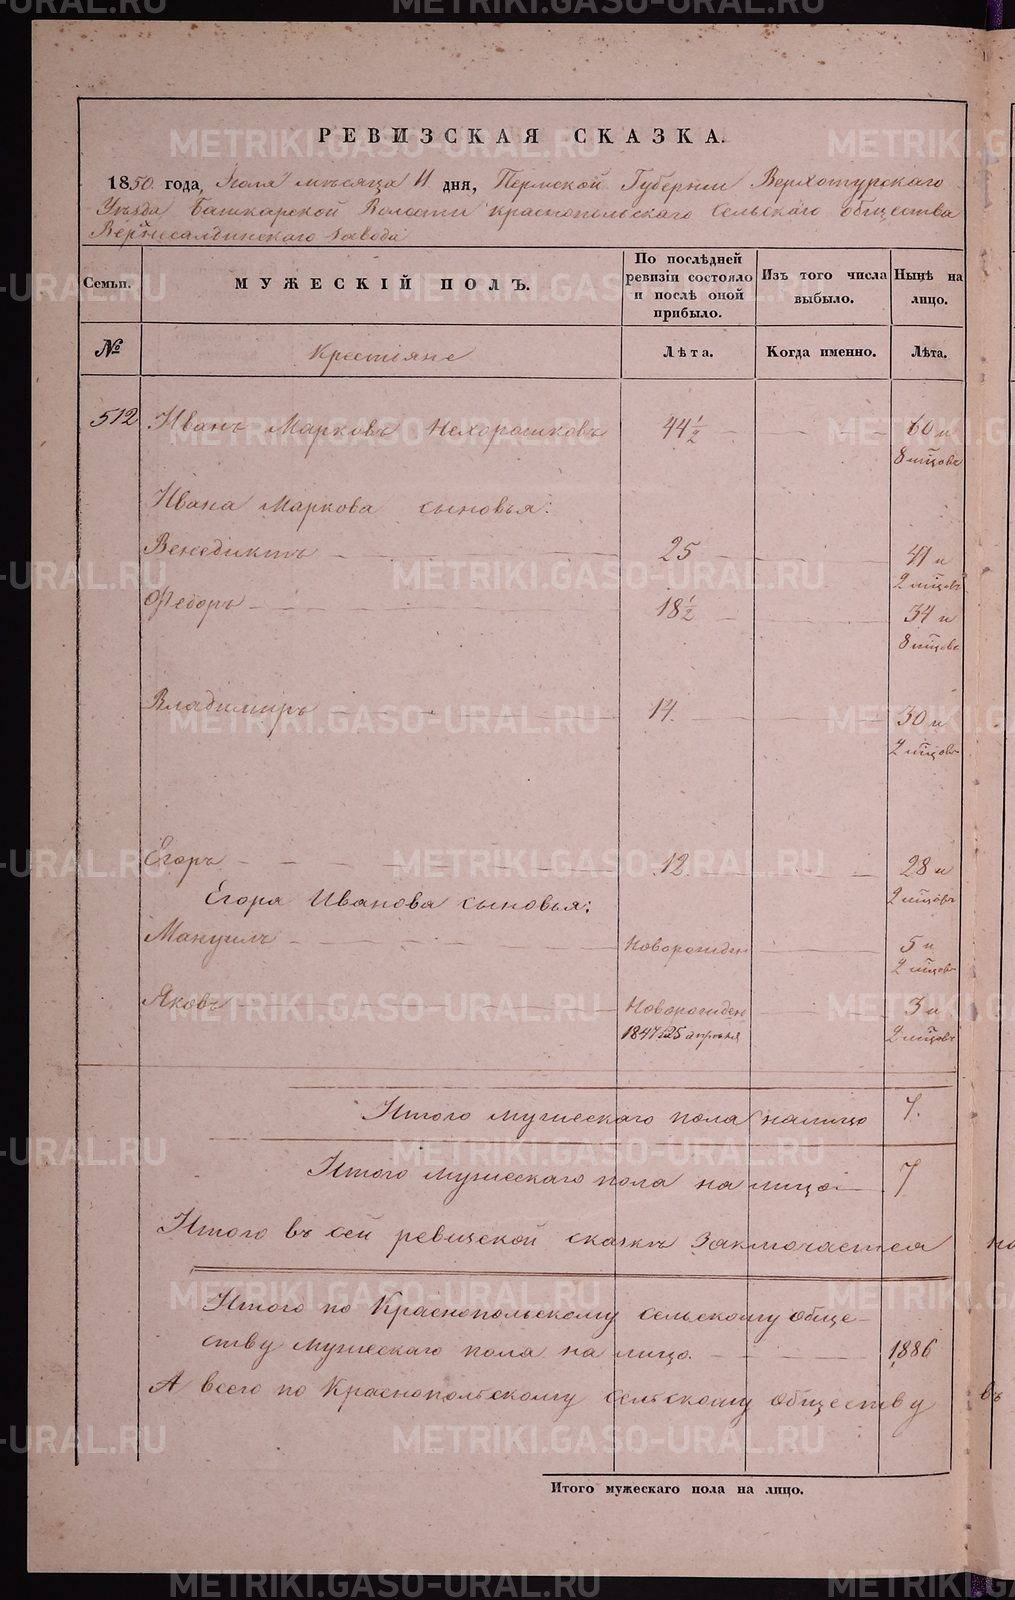 РЕВИЗСКАЯ СКАЗКА.
1850 года, Июля мѣсяца 11 дня, Пермской Губернии Верхотурскаго
Уѣзда Башкарской Волости Краснопольскаго Сельскаго общества
Верхнесалдинскаго завода
Семьи.
МУЖЕСКІЙ ПОЛЪ.
По послѣдней ревизіи состояло и послѣ оной прибыло.
Изъ того числа выбыло.
Нынѣ на лицо.
№
Крестьяне
Лѣта.
Когда именно.
Лѣта.
512 Иванъ Марковъ Нехорошковъ 44 1/2 60 и
8 мѣцовъ
Ивана Маркова сыновья:
Венедиктъ 25 41 и
2 мѣцовъ
Федоръ 18 1/2 34 и
8 мѣцовъ
Владимиръ 14. 30 и
2 мѣцовъ
Егоръ 12. 28 и
2 мѣцовъ
Егора Иванова сыновья:
Мануилъ Новорожден 5 и
2 мѣцовъ
Яковъ Новорожден 3 и
1847 25 апрѣля 2 мѣцовъ
Итого мужескаго пола налицо 7.
Итого мужескаго пола на лицо 7
Итого въ сей ревизской сказкѣ Заключается
Итого по Краснопольскому сельскому обще-
ству мужескаго пола на лицо. 1886
А всего по Краснопольскому сельскому обществу въ
Итого мужескаго пола на лицо.
METRIKI.GASO-URAL.RU